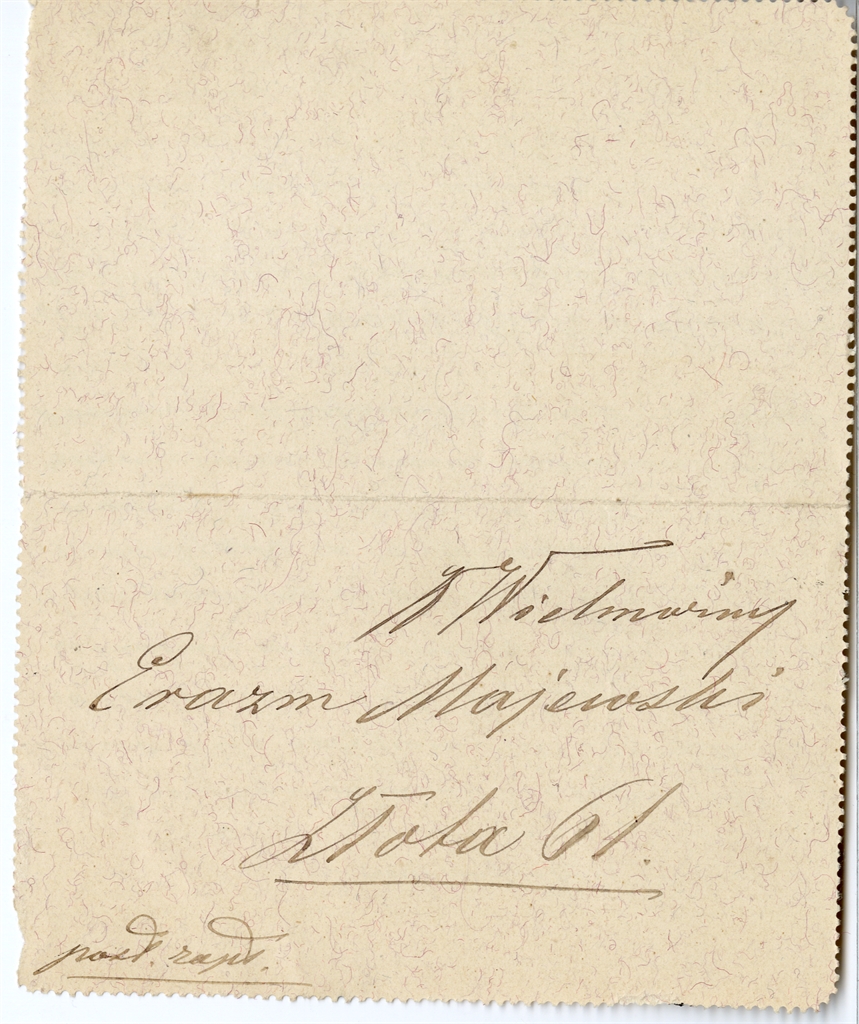 J Wielmożny
Erazm Majewski
Złota 61.
posł. zapł.